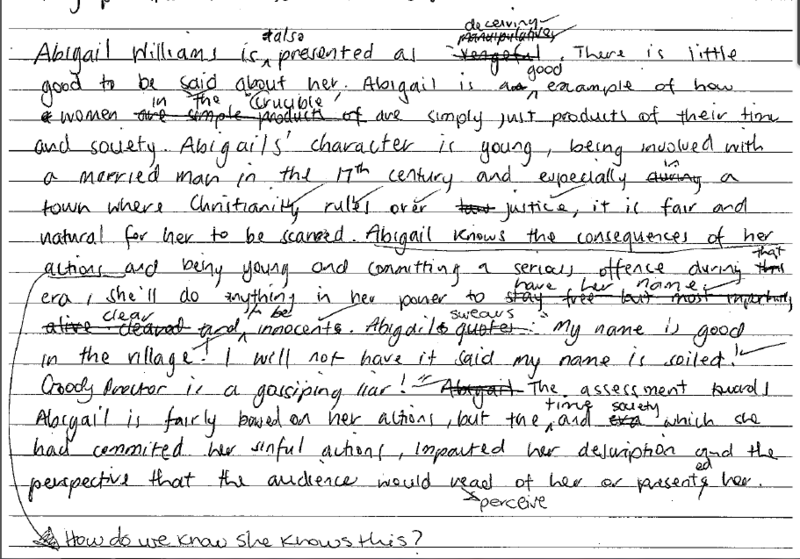 Abigail Williams is *also presented as deceiving. There is little
good to be said about her. Abigail is a good example of how
women in the 'Crucible' are simply just products of their time
and society. Abigails' character is young, being involved with
a married man in the 17th century and especially in a
town where Christianity rules over justice, it is fair and
natural for her to be scared. Abigail knows the consequences of her
actions and being young and committing a serious offence during that
era, she'll do anything in her power to have her name
clear and to be innocent. Abigail swears: "My name is good
in the village! I will not have it said my name is soiled!
Goody Proctor is a gossiping liar!" The assessment towards
Abigail is fairly based on her actions, but the time and society which she
had commited her sinful actions, impacted her description and the
perspective that the audience would read of her or presented her.
perceive
How do we know she knows this?